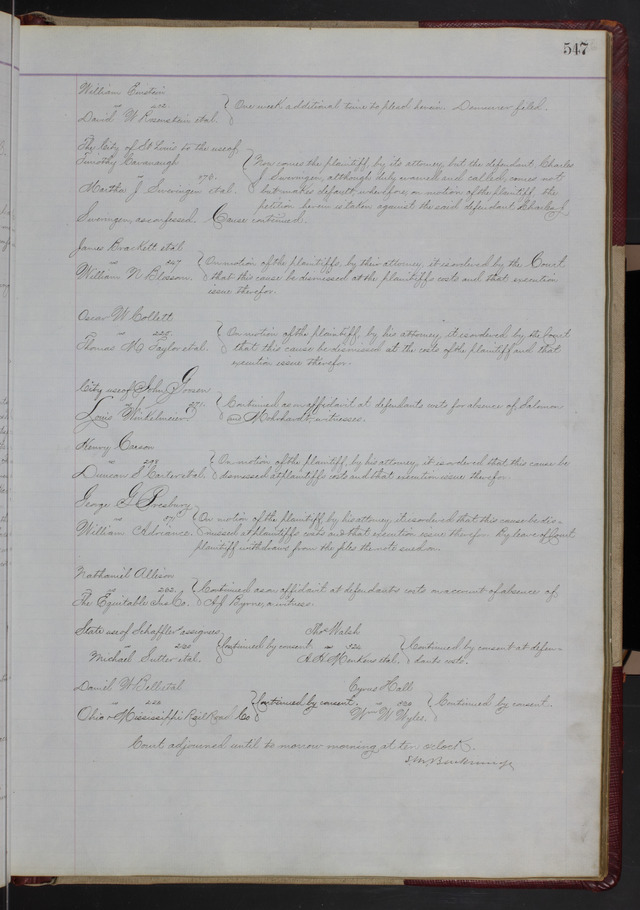 547
William Einstein
vs 202.
David W Rosenstein et al.
One week additional time to plead herein. Demurrer filed.
The City of St Louis to the use of
Timothy Cavanaugh
vs 276.
Martha J Swearingen et al.
Now comes the plaintiff by its attorney, but the defendant Charles
J. Swearingen, although duly warned and called, comes not
but makes default wherefore, on motion of the plaintiff the
petition herein is taken against the said defendant Charles J.
Swearingen, as confessed. Cause continued.
James Brackett et al
vs 247
William N Blossom.
On motion of the plaintiffs, by their attorney, it is ordered by the Court
that this cause be dismissed at the plaintiffs costs and that execution
issue therefor.
Oscar W Collett
vs 228.
Thomas M Taylor et al.
On motion of the plaintiff, by his attorney, it is ordered by the Court
that this cause be dismissed at the costs of the plaintiff and that
execution issue therefor.
City use of John Goosen
vs
Louis Winkelmeier
Continued as on affidavit at defendants costs for absence of Salomon
and witnesses.
Henry Carson
vs 293
Duncan S Carter et al.
On motion of the plaintiff, by his attorney, it is ordered that this cause be
dismissed at plaintiffs costs and that execution issue therefor.
George G Presbury
vs
William Adriance.
On motion of the plaintiff by his attorney, it is ordered that this cause be dis-
missed at plaintiffs costs and that execution issue therefor. By leave of Court
plaintiff withdraws from the files the note sued on.
Nathaniel Allison
vs 262.
The Equitable Ins Co.
Continued as on affidavit at defendants costs on account of absence of
Byrne, a witness.
State use of Schaffler assignee,
vs 220
Michael Sutter et al.
Continued by consent
Thos Walsh
vs 322
A. H. Menkens et al.
Continued by consent at defen-
dants costs.
Daniel W Bell et al
vs
Ohio & Mississippi Rail Road Co
Continued by consent.
Cyrus Hall
vs
Wm W Wyles.
Continued by consent.
Court adjourned until to morrow morning at ten o'clock.